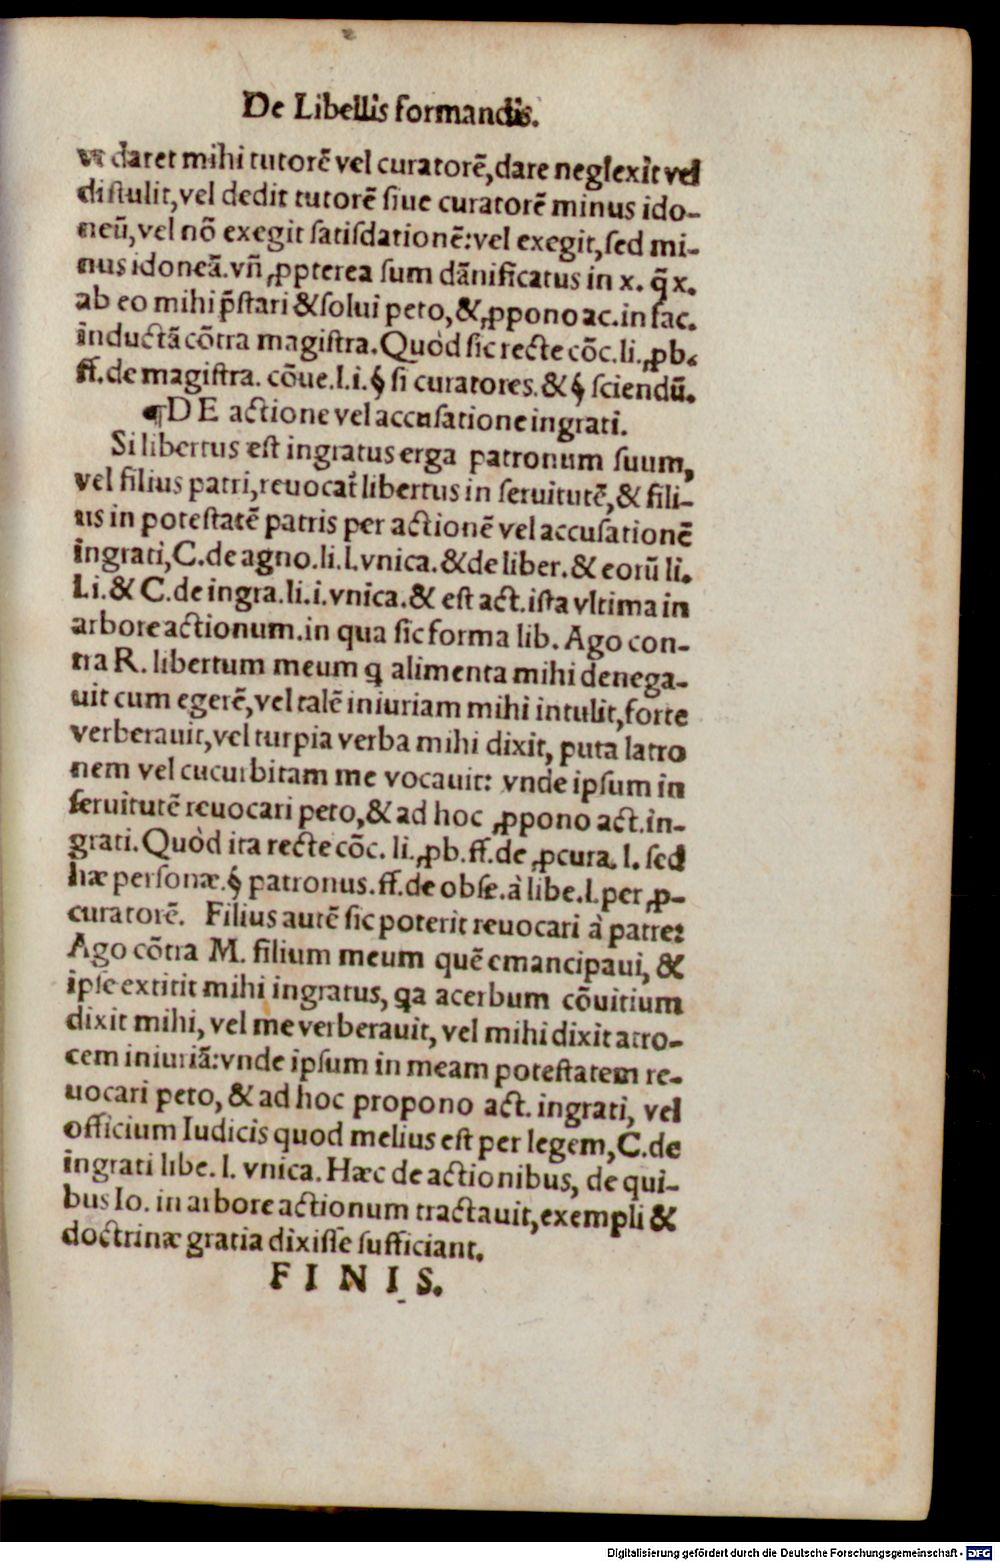 De Libellis formandis.
vt daret mihi tutorē vel curatorē, dare neglexit vel
distulit, vel dedit tutorē siue curatorē minus ido-
neū, vel nō exegit satisdationē: vel exegit, sed mi-
nus idoneā. vñ ꝓpterea sum dānificatus in x. q̄ x.
ab eo mihi p̄stari & solui peto, & ꝓpono ac. in fac.
inductā cōtra magistra. Quòd sic recte cōc. li. ꝓb.
ff. de magistra. cōue. l. i. § si curatores. & § sciendū.
¶ DE actione vel accusatione ingrati.
Si libertus est ingratus erga patronum suum,
vel filius patri, reuocat̃ libertus in seruitutē, & fili-
us in potestatē patris per actionē vel accusationē
ingrati, C. de agno. li. l. vnica. & de liber. & eorū li.
l. i. & C. de ingra. li. i. vnica. & est act. ista vltima in
arbore actionum. in qua sic forma lib. Ago con-
tra R. libertum meum ꝗ alimenta mihi denega-
uit cum egerē, vel talē iniuriam mihi intulit, forte
verberauit, vel turpia verba mihi dixit, puta latro
nem vel cucurbitam me vocauit: vnde ipsum in
seruitutē reuocari peto, & ad hoc ꝓpono act. in-
grati. Quòd ita recte cōc. li. ꝓb. ff. de ꝓcura. l. sed
hæ personæ. § patronus. ff. de obse. à libe. l. per ꝓ-
curatorē. Filius autē sic poterit reuocari à patre:
Ago cōtra M. filium meum quē emancipaui, &
ipse extitit mihi ingratus, ꝗa acerbum cōuitium
dixit mihi, vel me verberauit, vel mihi dixit atro-
cem iniuriā: vnde ipsum in meam potestatem re-
uocari peto, & ad hoc propono act. ingrati, vel
officium Iudicis quod melius est per legem, C. de
ingrati libe. l. vnica. Hæc de actionibus, de qui-
bus Io. in arbore actionum tractauit, exempli &
doctrinæ gratia dixisse sufficiant.
FINIS.
Digitalisierung gefördert durch die Deutsche Forschungsgemeinschaft - DFG